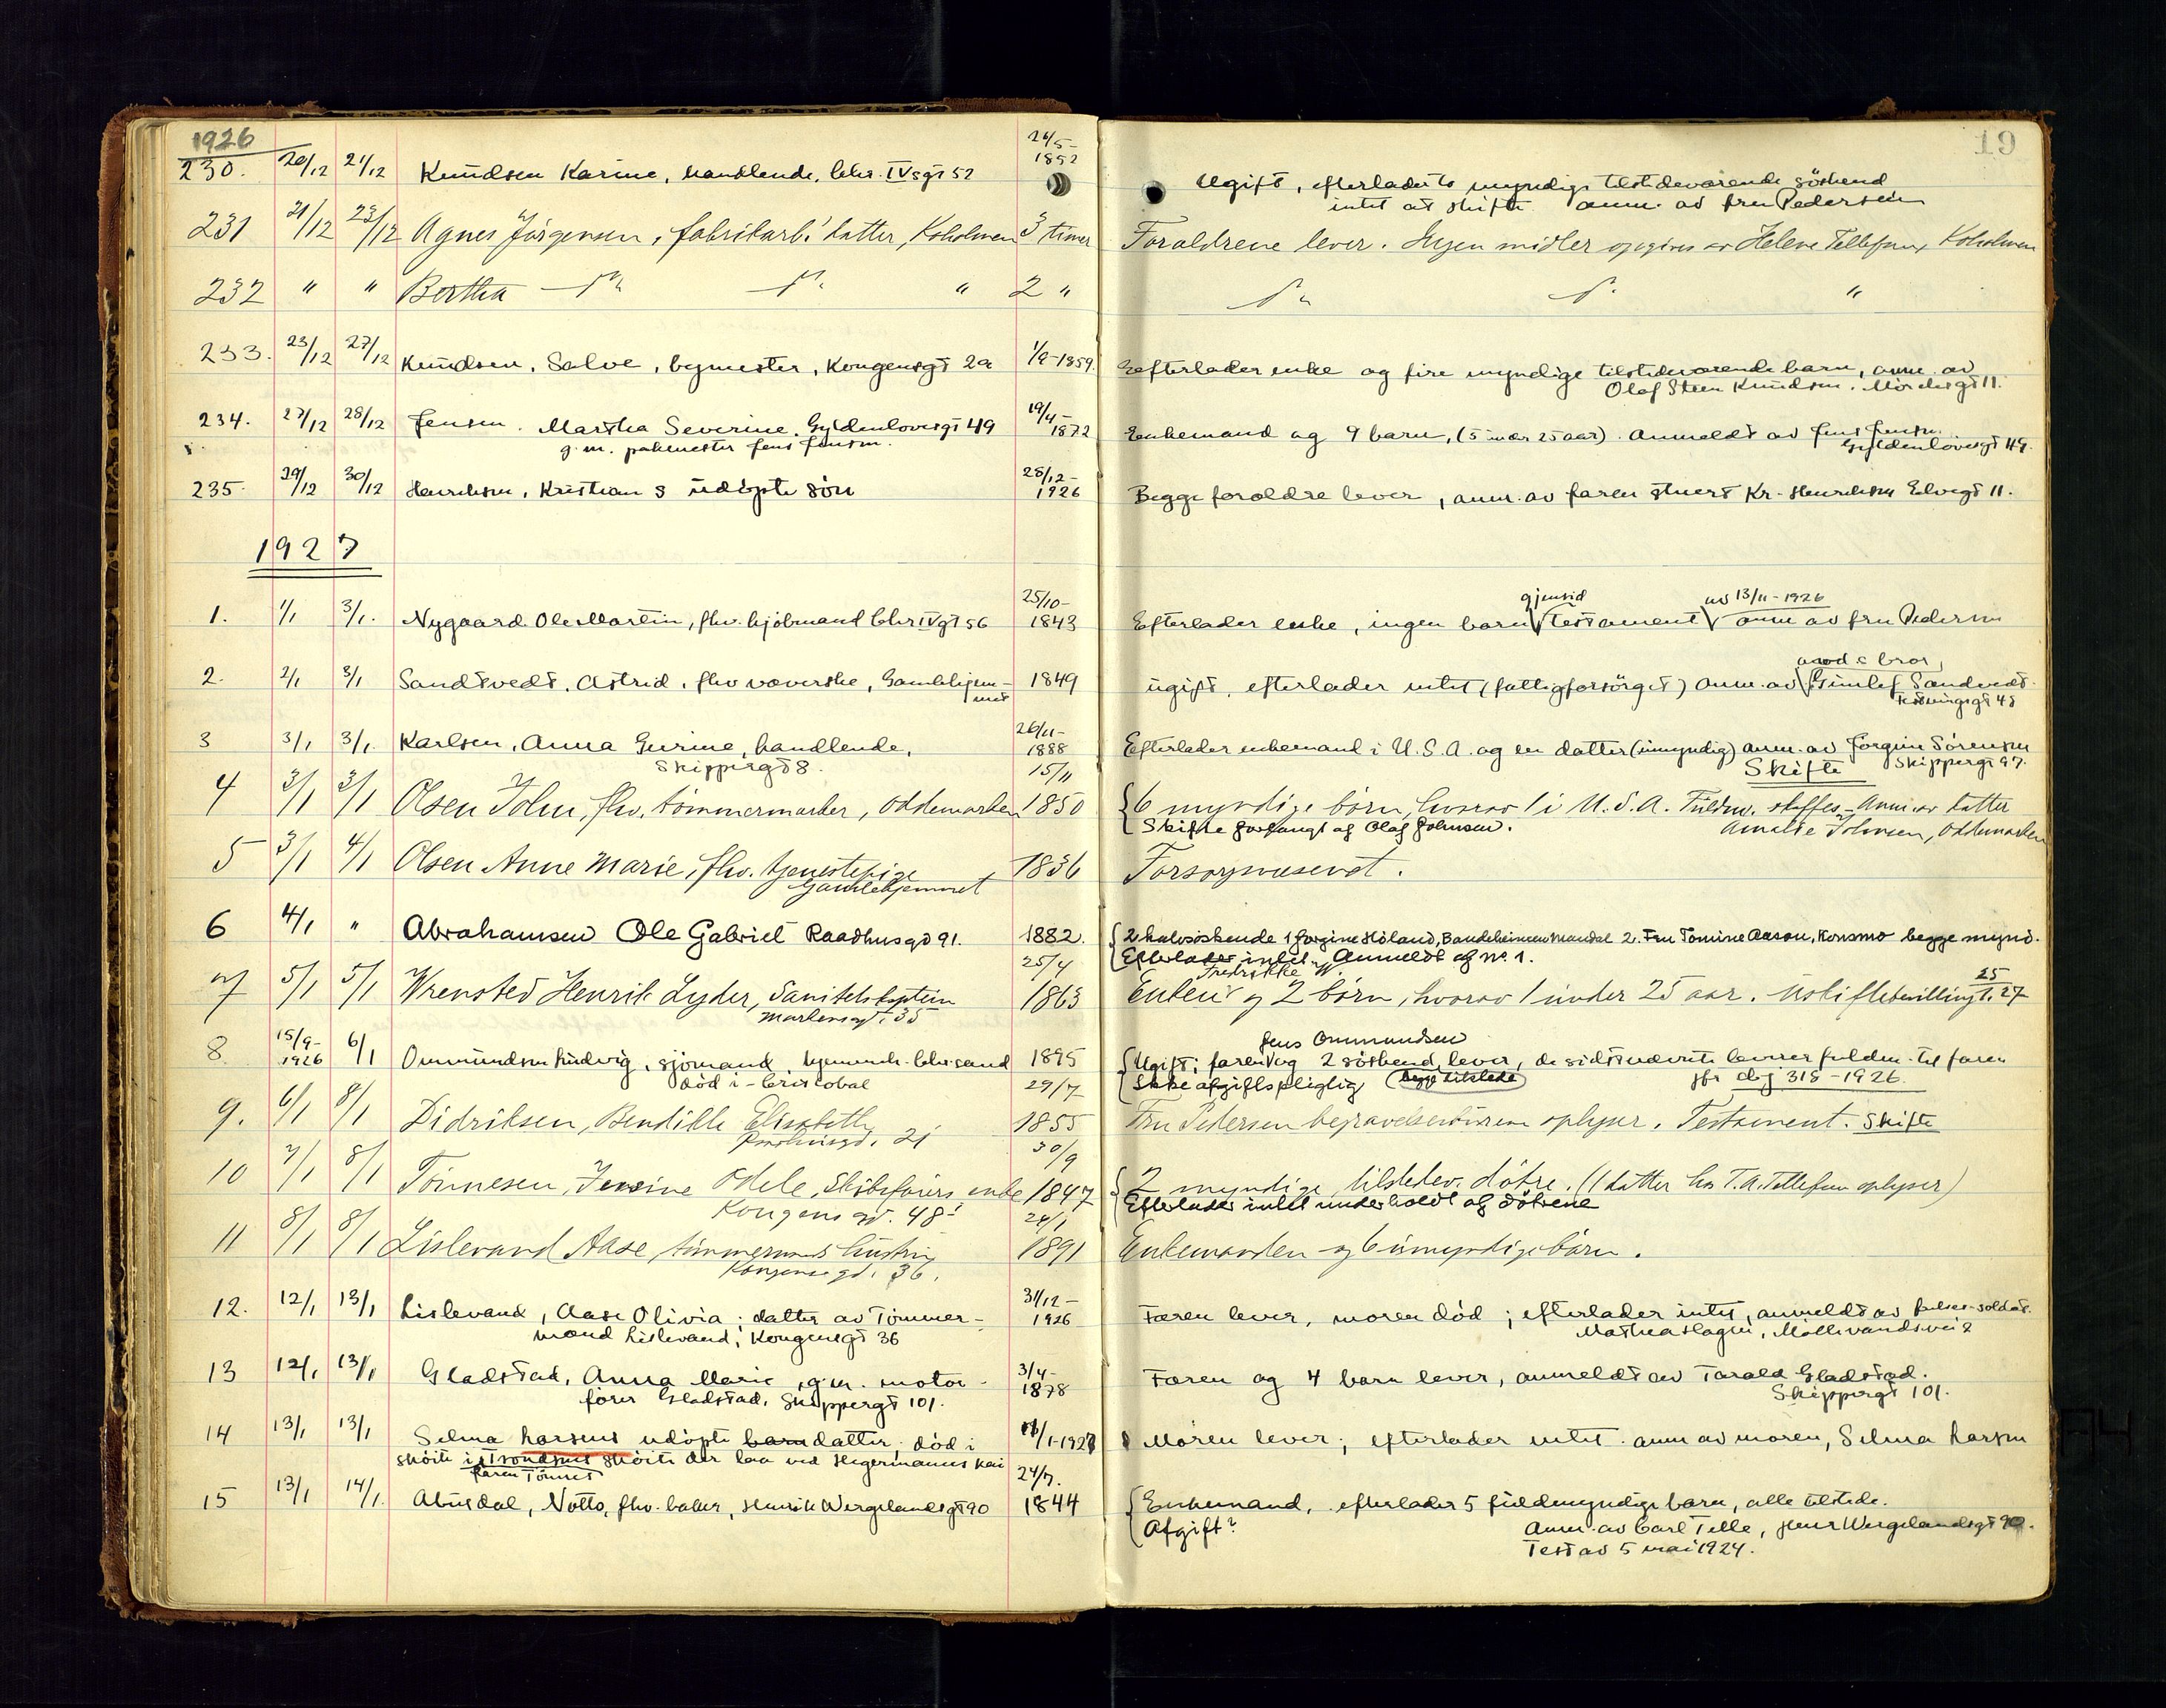 19
1926
230. 20/12 21/12 Knudsen Karine, handlende, Chr. IVsgt 52 24/5-1852 Ugift, efterlader to myndige tilstedeværende søskend,
intet at skifte anm. av fru Pedersen
231 21/12 23/12 Agnes Jørgensen, fabrikarb.' datter, Koholmen 3 timer Forældrene lever. Ingen midler opgives av Helene Tellefsen, Koholmen
232 " " Bertha " 2 " "
233. 23/12 27/12 Knudsen, Salve, bymester, Kongensgt 2a 1/9-1859. Efterlader enke og fire myndige tilstedeværende barn, anm. av
Olaf Steen Knudsen
234. 27/12 28/12 Jensen, Martha Severine, Gyldenlovesgt 49 19/4-1872 Enkemand og 9 barn, (5 under 25 aar). Anmeldt av Jens Jensen
g.m. pakmester Jens Jensen. Gyldenløvesgt 49.
235. 29/12 30/12 Henriksen, Kristian s udøpte søn 28/12-1926 Begge foroldre lever, anm. av faren stuert Kr. Henriksen Elvegt 11.
1927
1. 1/1 3/1. Nygaard Ole Martin, fhv. kjøbmand Chr IVgt 56 25/10-1843 Efterlader enke, ingen barn gjensid testament av 13/11-1926 anm av fru Pedersen
2. 2/1 3/1 Sandtvedt, Astrid, fhv væverske, Gamlehjem-met 1849 ugift, efterlader intet (fattigforsörget) anm. av bror, Sandvedt
3 3/1 3/1. Karlsen, Anna Gurine, handlende, 26/11-1888 Efterlader enkemand i U.S.A. og en datter (umyndig) anm. av Jörgine Sörensen
Skippergt 8. Skifte Skippergt 97.
4 3/1 3/1 Olsen John, fhv. tømmermarker, Oddemarken 15/11 1850 6 myndige børn, hvorav 1 i U.S.A. Fuldm. skaffes. Anm. av datter
Skifte forlangt af Olaf Johnsen. Amalie Johnsen, Oddemarken
5 3/1 4/1 Olsen Anne Marie, fhv. tjenestepige 1836 Forsorgsvæsenet.
Gamlehjemmet
6 4/1 " Abrahamsen Ole Gabriel Raadhusgd 91. 1882. 2 halvsøskende 1 Jorgine Höland, Mandal 2. Fru Tomine Aasen, Konsmo begge mynd.
Efterlader intet. Anmeldt af No. 1.
7 5/1 5/1 Wrensted Henrik Lyder, Sanitetskaptein 25/4 1863 Enken Fredrikke W. og 2 børn, hvorav 1 under 25 aar. Uskiftebevilling 25/1.27
Markensgt. 35
8. 15/9-1926 6/1 Ommundsen Ludvig, sjømand, Chr.sand 1895 Ugift; faren Jens Ommundsen og 2 søskend lever, de sidstnævnte leverer fuldm. til faren
død i Cristobal Ikke afgiftspligtig begge tilstede jfr dbj 318-1926.
9. 6/1 8/1 Didriksen, Bendikte Elisabeth 29/7 1855 Fru Pedersen begravelsesbureau oplyser. Testament. Skifte
21
10 7/1 8/1 Tønnesen, Jensine Odele, Skibsførers enke 30/9 1847 2 myndige, tilstedev. døtre. (1 datter hos T.A. Tellefsen oplyser)
Kongens gd. 48 Efterlader intet underholdt af døtrene
11 8/1 8/1 Lislevand Aase, tømmermands hustru 1891 Enkemanden og 6 umyndige børn.
Kongensgd. 36.
12. 12/1 13/1 Lislevand, Aase Olivia; datter av Tømmer- 31/12-1926 Faren lever, moren død; efterlader intet, anmeldt av frelses-soldat.
mand Lislevand, Kongensgt 36 Möllevandsvei 2
13 12/1 13/1 Gladstad, Anna Marie, g.m. motor- 3/4-1878 Faren og 4 barn lever, anmeldt av Tarald Gladstad.
fører Gladstad, Skippergt 101. Skippergt 101.
14 13/1 13/1 Selma Larsens udøpte barn datter, död i 11/1-1927 Moren lever; efterlader intet. anm av moren, Selma Larsen
sköite der laa ved Hegermanns kai
faren Tönnes
15 13/1 14/1. Abusdal, Notto, fhv. baker, Henrik Wergelandsgt 90 24/7. 1844 Enkemand, efterlader 5 fuldmyndige barn, alle tilstede.
Afgift? Anm. av Carl Telle, Henr Wergelandsgt 90.
Test av 5 mai 1924.